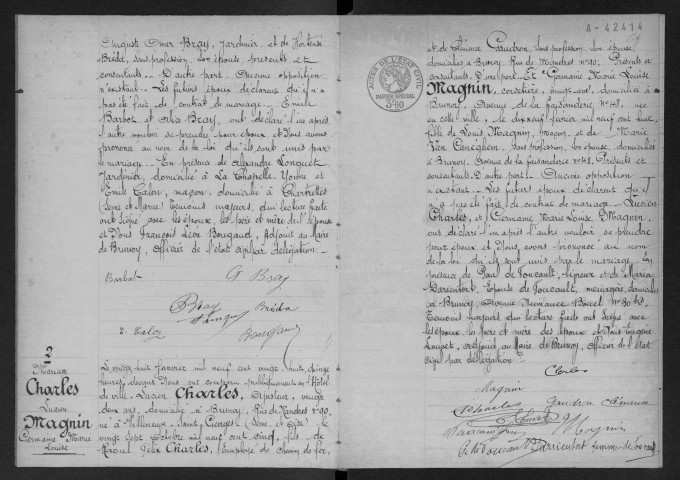 Auguste Omer Bray, jardinier, et de Hortense
Bréda, sans profession, son épouse présents et
consentants. — D'autre part. Aucune opposition
n'existant. — Les futurs époux déclarent qu'il n'a
pas été fait de contrat de mariage. — Emile
Barbot et Bray, ont déclaré l'un après
l'autre vouloir se prendre pour époux et Nous avons
prononcé au nom de la loi qu'ils sont unis par
le mariage. — En présence de Alexandre Longuet
Jardinier, domicilié à La Chapelle, Yonne et
Emile Talon, maçon, domicilié à Chartrettes
(Seine et Marne) Témoins majeurs, qui lecture faite
ont signé avec les époux, les père et mère de l'épouse
et Nous François Léon Bourgaud, Adjoint au Maire
de Brunoy, Officier de l'état civil par délégation.
Barbot
G Bray
Bray
Bréda
E. Talon
2
Mariage
Charles
Lucien
Magnin
Germaine Marie
Louise
Le vingt huit janvier mil neuf cent vingt huit, dix
heures, devant Nous ont comparu publiquement en l'Hôtel
de ville, Lucien Charles, Ajusteur, vingt
deux ans, domicilié à Brunoy, Rue de Mandres n° 90,
né à Villeneuve-Saint-Georges (Seine et Oise) le
vingt sept Octobre mil neuf cent cinq, fils de
Raoul Félix Charles, employé de chemin de fer,
A-42414
ACTES DE L'ÉTAT CIVIL
PAPIER SPÉCIAL
3f60
et de Caudron, sans profession, son épouse
domiciliés à Brunoy, Rue de Mandres n° 90. Présents et
consentants. D'une part. — Et Germaine Marie Louise
Magnin, vingt ans, domiciliée à
Brunoy, Avenue de la faisanderie n° 48, née
en cette ville, le dix neuf février mil neuf cent huit,
fille de Louis Magnin, maçon, et de Marie
Van Caneghem, sans profession, son épouse, domiciliés
à Brunoy, Avenue de la faisanderie n° 48, Présents et
consentants. D'autre part. — Aucune opposition
n'existant. — Les futurs époux déclarent qu'il
n'a pas été fait de contrat de mariage. — Lucien
Charles, et Germaine Marie Louise Magnin,
ont déclaré l'un après l'autre vouloir se prendre
pour époux et Nous avons prononcé au nom
de la loi qu'ils sont unis par le mariage. En
présence de Paul de Foucault, et de Maria
Darrientort, Epouse de Foucault, ménagère, domiciliés
à Brunoy, Avenue
Témoins majeurs, qui lecture faite ont signé avec
les époux, les père et mère des époux et Nous Eugène
Loupet, Adjoint au Maire de Brunoy, Officier de l'état
civil par délégation.
Charles
Magnin
Charles
Magnin
P. de Foucault